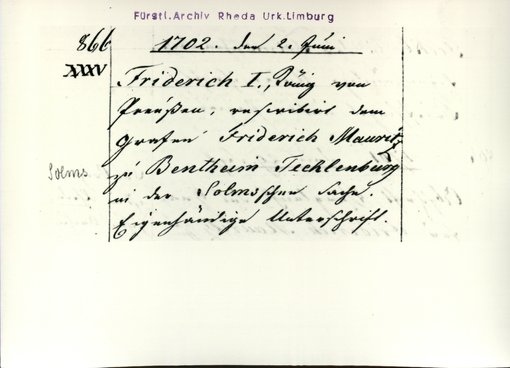 Fürstl. Archiv Rheda Urk. Limburg
866
XXXV
1702. den 2. Juni
Friderich I., König von
Preußen, rescribirt dem
Grafen Friderich Mauritz
Solms
zu Bentheim Tecklenburg
in der Solmsschen Sache.
Eigenhändige Unterschrift.